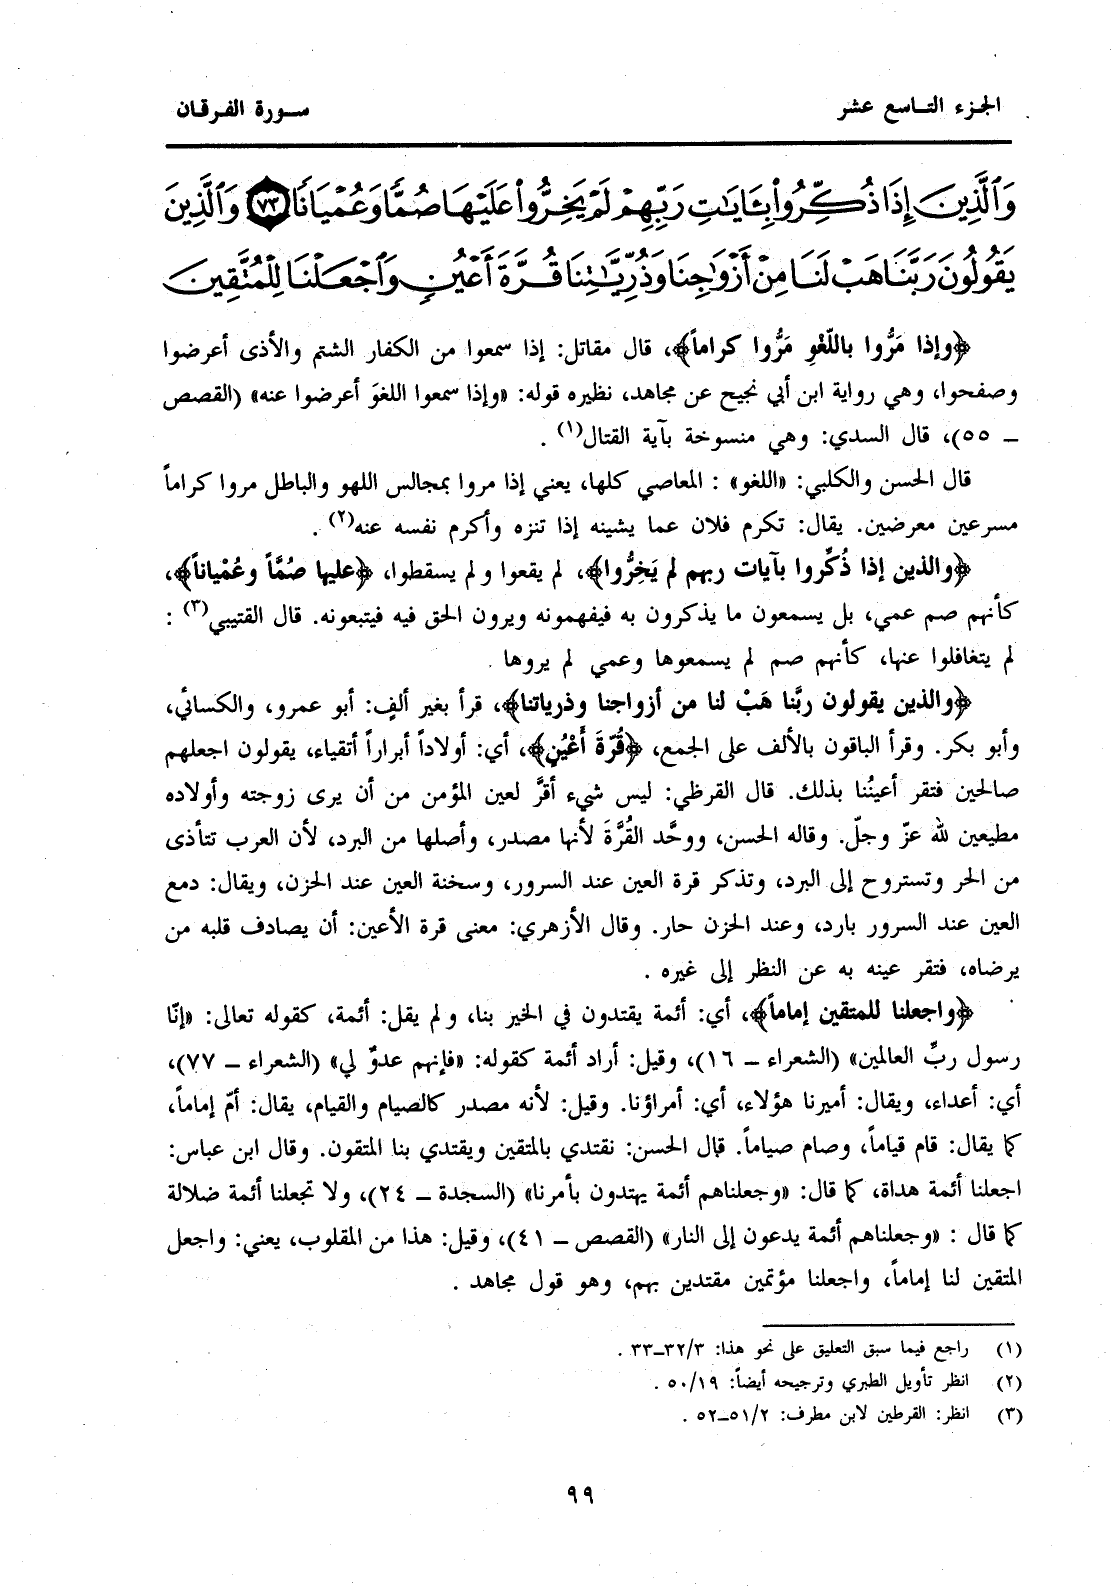 الجزء التاسع عشر
سورة الفرقان
وَٱلَّذِينَ إِذَا ذُكِّرُوا۟ بِـَٔايَٰتِ رَبِّهِمْ لَمْ يَخِرُّوا۟ عَلَيْهَا صُمًّا وَعُمْيَانًا ٧٣ وَٱلَّذِينَ
يَقُولُونَ رَبَّنَا هَبْ لَنَا مِنْ أَزْوَٰجِنَا وَذُرِّيَّٰتِنَا قُرَّةَ أَعْيُنٍ وَٱجْعَلْنَا لِلْمُتَّقِينَ
﴿وإذا مَرُّوا باللّغْوِ مَرُّوا كراماً﴾، قال مقاتل: إذا سمعوا من الكفار الشتم والأذى أعرضوا
وصفحوا، وهي رواية ابن أبي نجيح عن مجاهد، نظيره قوله: «وإذا سمعوا اللغوَ أعرضوا عنه» (القصص
ـ ٥٥)، قال السدي: وهي منسوخة بآية القتال(١) .
قال الحسن والكلبي: «اللغو» : المعاصي كلها، يعني إذا مروا بمجالس اللهو والباطل مروا كراماً
مسرعين معرضين. يقال: تكرم فلان عما يشينه إذا تنزه وأكرم نفسه عنه(٢) .
﴿والذين إذا ذُكِّروا بآيات ربهم لم يَخِرُّوا﴾، لم يقعوا ولم يسقطوا، ﴿عليها صُمَّاً وعُمْياناً﴾،
كأنهم صم عمي، بل يسمعون ما يذكرون به فيفهمونه ويرون الحق فيه فيتبعونه. قال القتيبي(٣) :
لم يتغافلوا عنها، كأنهم صم لم يسمعوها وعمي لم يروها .
﴿والذين يقولون ربَّنا هَبْ لنا من أزواجنا وذرياتنا﴾، قرأ بغير ألفٍ: أبو عمرو، والكسائي،
وأبو بكر. وقرأ الباقون بالألف على الجمع، ﴿قُرّةَ أَعْيُنٍ﴾، أي: أولاداً أبراراً أتقياء، يقولون اجعلهم
صالحين فتقر أعينُنا بذلك. قال القرظي: ليس شيء أقرَّ لعين المؤمن من أن يرى زوجته وأولاده
مطيعين لله عزّ وجلّ. وقاله الحسن، ووحَّد القُرَّةَ لأنها مصدر، وأصلها من البرد، لأن العرب تتأذى
من الحر وتستروح إلى البرد، وتذكر قرة العين عند السرور، وسخنة العين عند الحزن، ويقال: دمع
العين عند السرور بارد، وعند الحزن حار. وقال الأزهري: معنى قرة الأعين: أن يصادف قلبه من
يرضاه، فتقر عينه به عن النظر إلى غيره .
﴿واجعلنا للمتقين إماماً﴾، أي: أئمة يقتدون في الخير بنا، ولم يقل: أئمة، كقوله تعالى: «إنّا
رسول ربِّ العالمين» (الشعراء ـ ١٦)، وقيل: أراد أئمة كقوله: «فإنهم عدوٌ لي» (الشعراء ـ ٧٧)،
أي: أعداء، ويقال: أميرنا هؤلاء، أي: أمراؤنا. وقيل: لأنه مصدر كالصيام والقيام، يقال: أمّ إماماً،
كما يقال: قام قياماً، وصام صياماً. قال الحسن: نقتدي بالمتقين ويقتدي بنا المتقون. وقال ابن عباس:
اجعلنا أئمة هداة، كما قال: «وجعلناهم أئمة يهتدون بأمرنا» (السجدة ـ ٢٤)، ولا تجعلنا أئمة ضلالة
كما قال : «وجعلناهم أئمة يدعون إلى النار» (القصص ـ ٤١)، وقيل: هذا من المقلوب، يعني: واجعل
المتقين لنا إماماً، واجعلنا مؤتمين مقتدين بهم، وهو قول مجاهد .
(١) راجع فيما سبق التعليق على نحو هذا: ٣/٣٢ـ٣٣ .
(٢) انظر تأويل الطبري وترجيحه أيضاً: ١٩/٥٠ .
(٣) انظر: القرطين لابن مطرف: ٢/٥١ـ٥٢ .
٩٩